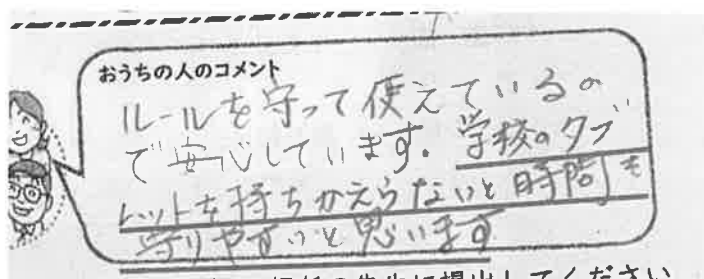 おうちの人のコメント
ルールを守って使えているの
で安心しています。学校のタブ
レットを持ちかえらないと時間も
守りやすいと思います
の先生に提出してください